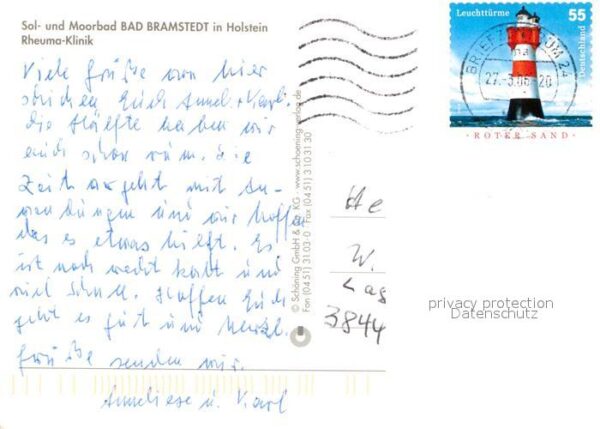 Sol- und Moorbad BAD BRAMSTEDT in Holstein
Rheuma-Klinik
Viele Grüße von hier
Euch Annel. + Karl.
die Hälfte haben wir
auch schon rum. die
Zeit vergeht mit An-
wendungen und wir hoffen
das es etwas hilft. Es
ist noch recht kalt und
viel Schnee. Hoffen Euch
geht es gut und herzl.
Grüße senden wir.
Anneliese u. Karl
© Schöning GmbH & Co. KG · www.schoening-verlag.de
Fon (04 51) 31 03-0 Fax (04 51) 3 10 31 30
W.
Lag
3844
privacy protection
Datenschutz
Leuchttürme 55
Deutschland
ROTER SAND
BRIEFZENTRUM 24